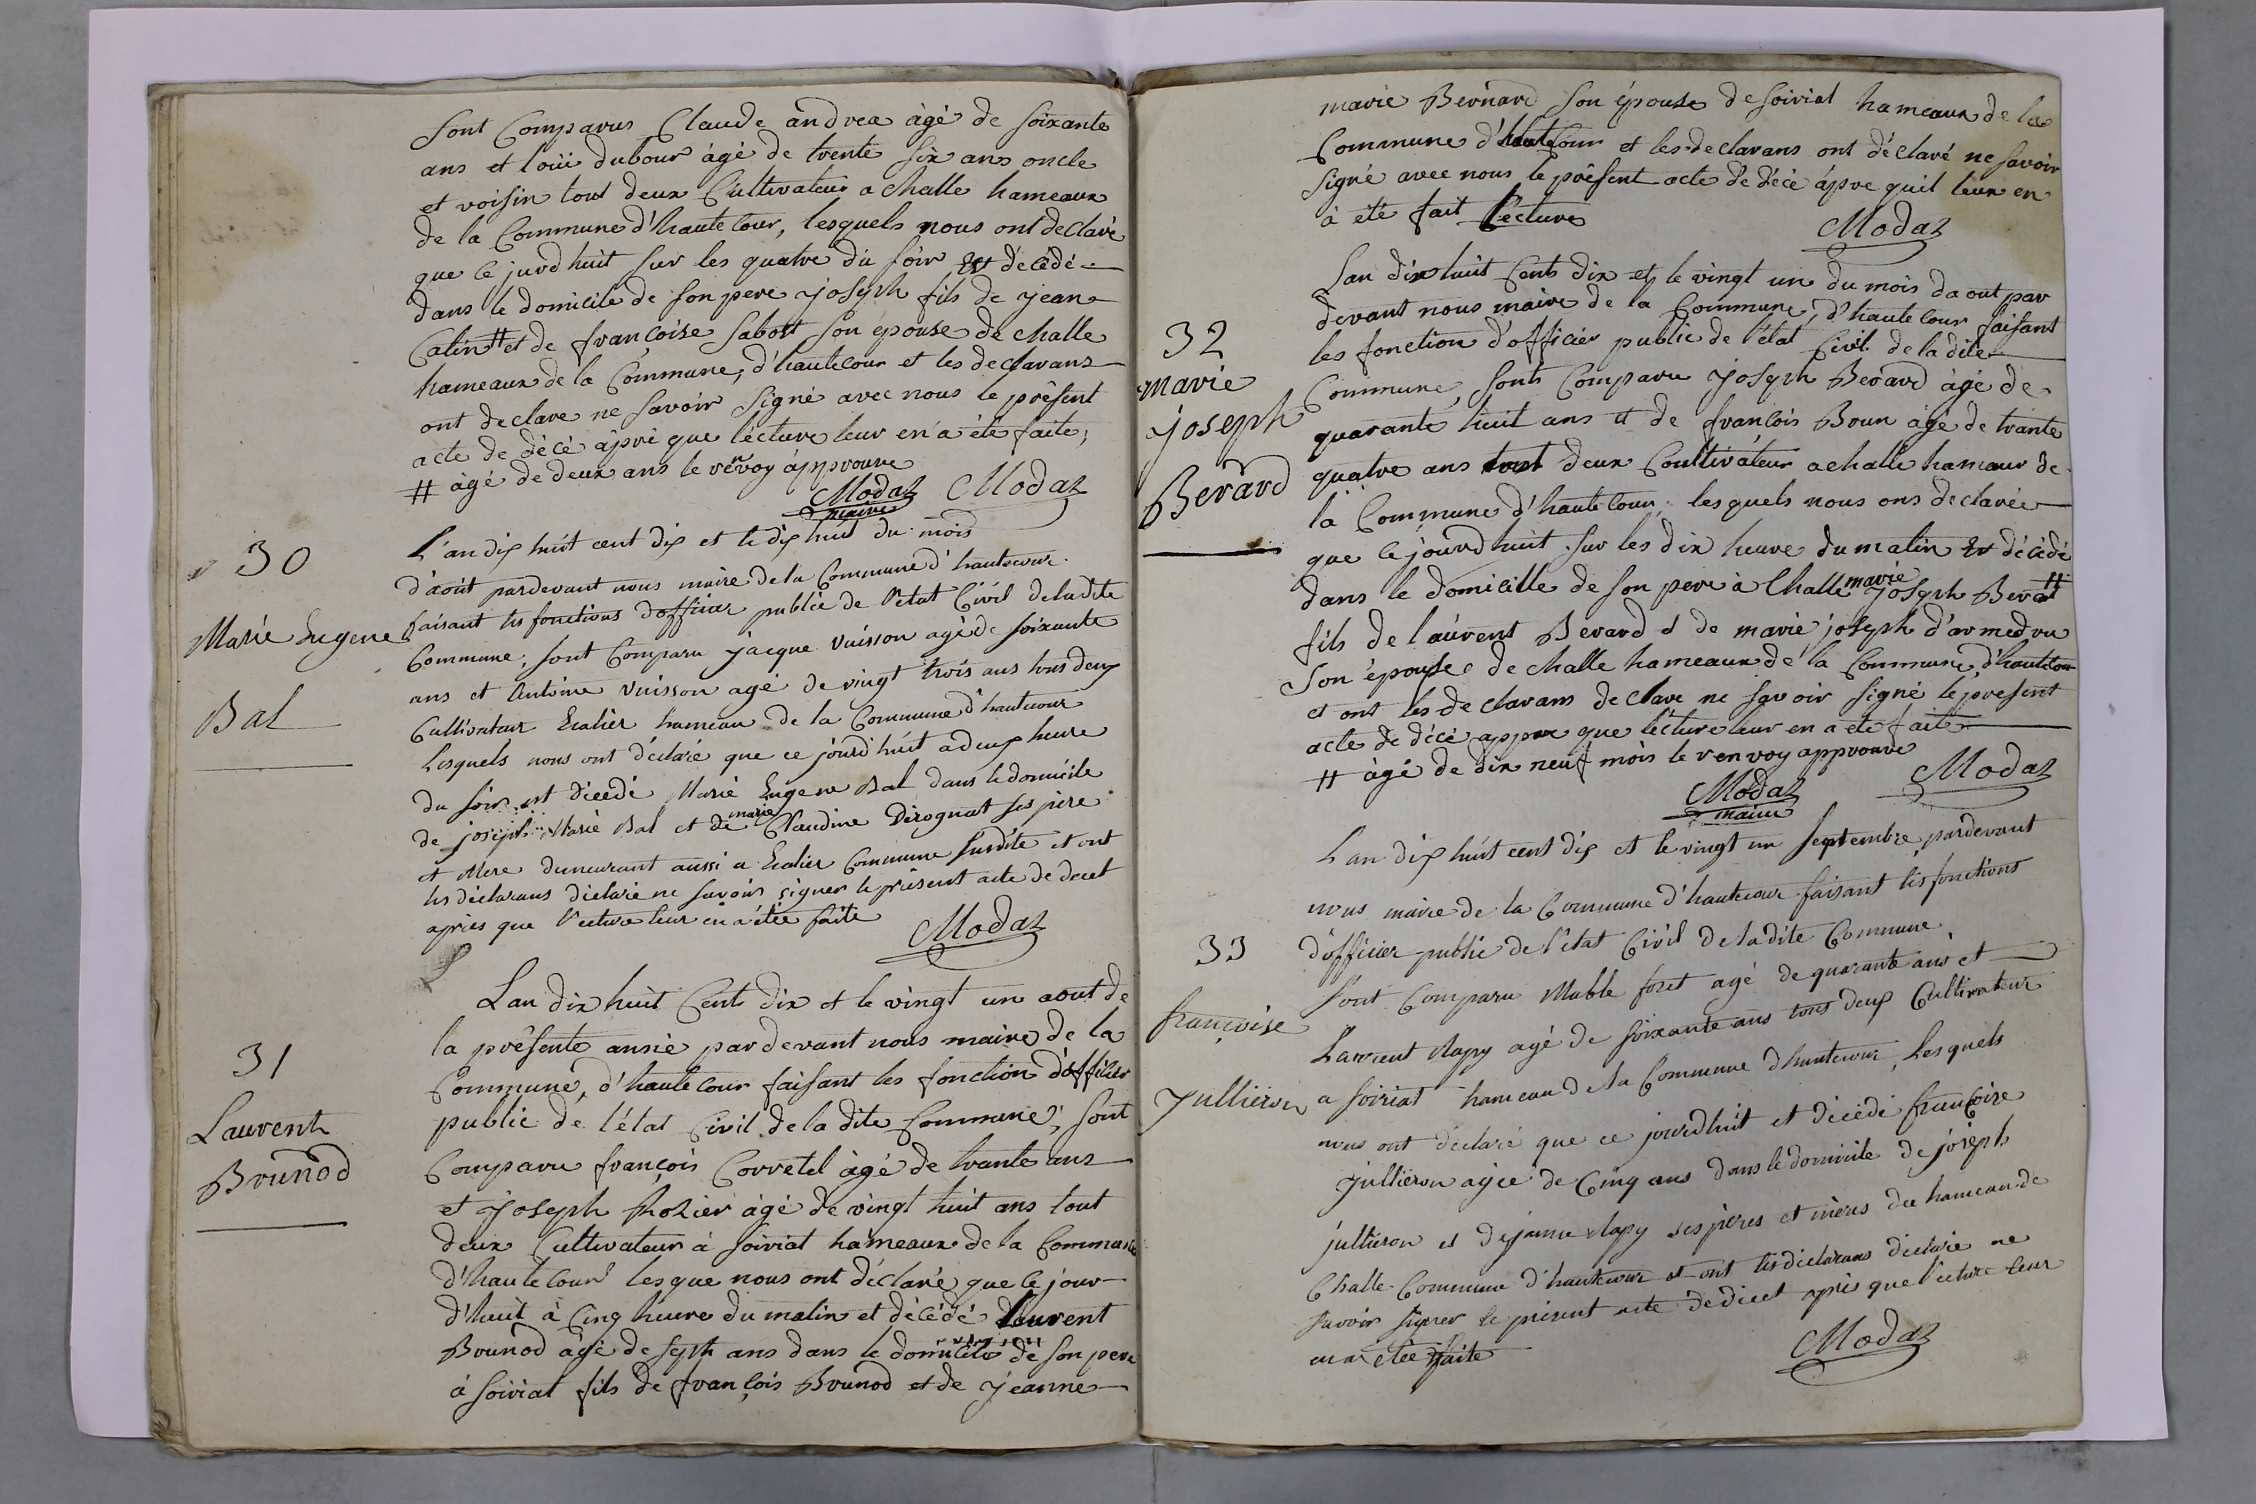 sont Comparus Claude andrea àgé de soixante
ans et loüi dubour àgé de trente six ans oncle
et voisin tout deux Cultivateur a challe hameaux
de la Commune d'hautecour, lesquels nous ont declaré
que ce jurd huit sur les quatre du soir est décédé
dans le domicile de son pere joseph fils de jean
Catin # et de françoise sabost son épouse de challe
hameaux de la Commune, d'hautecour et les declarans
ont declare ne savoir signé avec nous le présent
acte de décé àpré que lécture leur en a été faite,
# àgé de deux ans le renvoy àpprouve
Modas Modas
maire
30
L'an dix huit cent dix et le dix huit du mois
d'août pardevant nous maire de la Commune d'hautecour
faisant les fonctions d'officier public de l'état Civil de ladite
Marie Eugene
Commune, sont Comparu jacque vuisson agé de soixante
ans et Antoine vuisson agé de vingt trois ans tous deux
Bal
Cultivateur Ecalier hameau de la Commune d'hautecour
Lesquels nous ont déclaré que ce jourd'huit a deux heure
du soir est décédé Marie Eugene Bal dans le domicile
de joseph Marie Bal et de marie Claudine Dérognat ses père
et Mere demeurant aussi a Ecalier Commune susdite et ont
les déclarans déclaré ne savoir signer le présent acte de decet
après que l'ecture leur en a étée faite
Modas
31
Lan dix huit Cent dix et le vingt un aout de
la présente année par devant nous maire de la
Commune, d'hautecour faisant les fonction d'officier
Laurent
public de l'état Civil de la dite Commune, sont
Brunod
Comparu françois Corretel àgé de trante ans
et joseph Rozier àgé de vingt huit ans tout
deux Cultivateur à soiriat hameaux de la Commune
d'hautecour lesque nous ont déclaré que ce jour
d'huit à Cinq heure du matin et décédé laurent
Brunod àgé de sepht ans dans le domicile de son pere
à soiriat fils de françois Brunod et de jeanne
marie Bernard son épouse de soiriat hameaux de la
Commune d'hautecour et les declarans ont déclaré ne savoir
signé avec nous le présent acte de décé àpre quil leur en
à été fait lécture
Modas
Lan dix huit Cent dix et le vingt un du mois daout par
devant nous maire de la Commune, d'hautecour faisant
32
les fonction d'officier public de l'état Civil de la dite
marie
Commune, sont Comparu joseph Berard àgé de
joseph
quarante huit ans et de françois Boun àgé de trante
Berard
quatre ans tout deux Coultivateur a challe hameaux de
la Commune d'hautecour, lesquels nous ons declarée
que ce jourd huit sur les dix heure du matin est décédé
dans le domicille de son pere à Challe marie joseph Berat #
fils de laurent Berard et de marie joseph d'armedru
son épouse de challe hameaux de la Commune d'hautecour
et ont les declarans declare ne savoir signé le présent
acte de décé appre que lécture leur en a été faite
# àgé de dix neuf mois le renvoy approuvé
Modas Modas
maire
L an dix huit cent dix et le vingt un septembre pardevant
nous maire de la Commune d'hautecour faisant les fonctions
33
d'officier public de l'état Civil de ladite Commune,
sont Comparu Mable foret agé de quarante ans et
françoise
Laurent Mapy agé de soixante ans tous deux Cultivateur
jullieron
a soiriat hameau de la Commune d'hautecour, Lesquels
nous ont déclaré que ce jourdhuit et décédé françoise
jullieron agée de Cinq ans dans le domicile de joseph
jullieron et de jeanne Mapy ses pères et mères du hameau de
Challe Commune d'hautecour et ont les déclarans déclaré ne
savoir signer le présent acte de décet après que l'ecture leur
en a étée faite
Modas